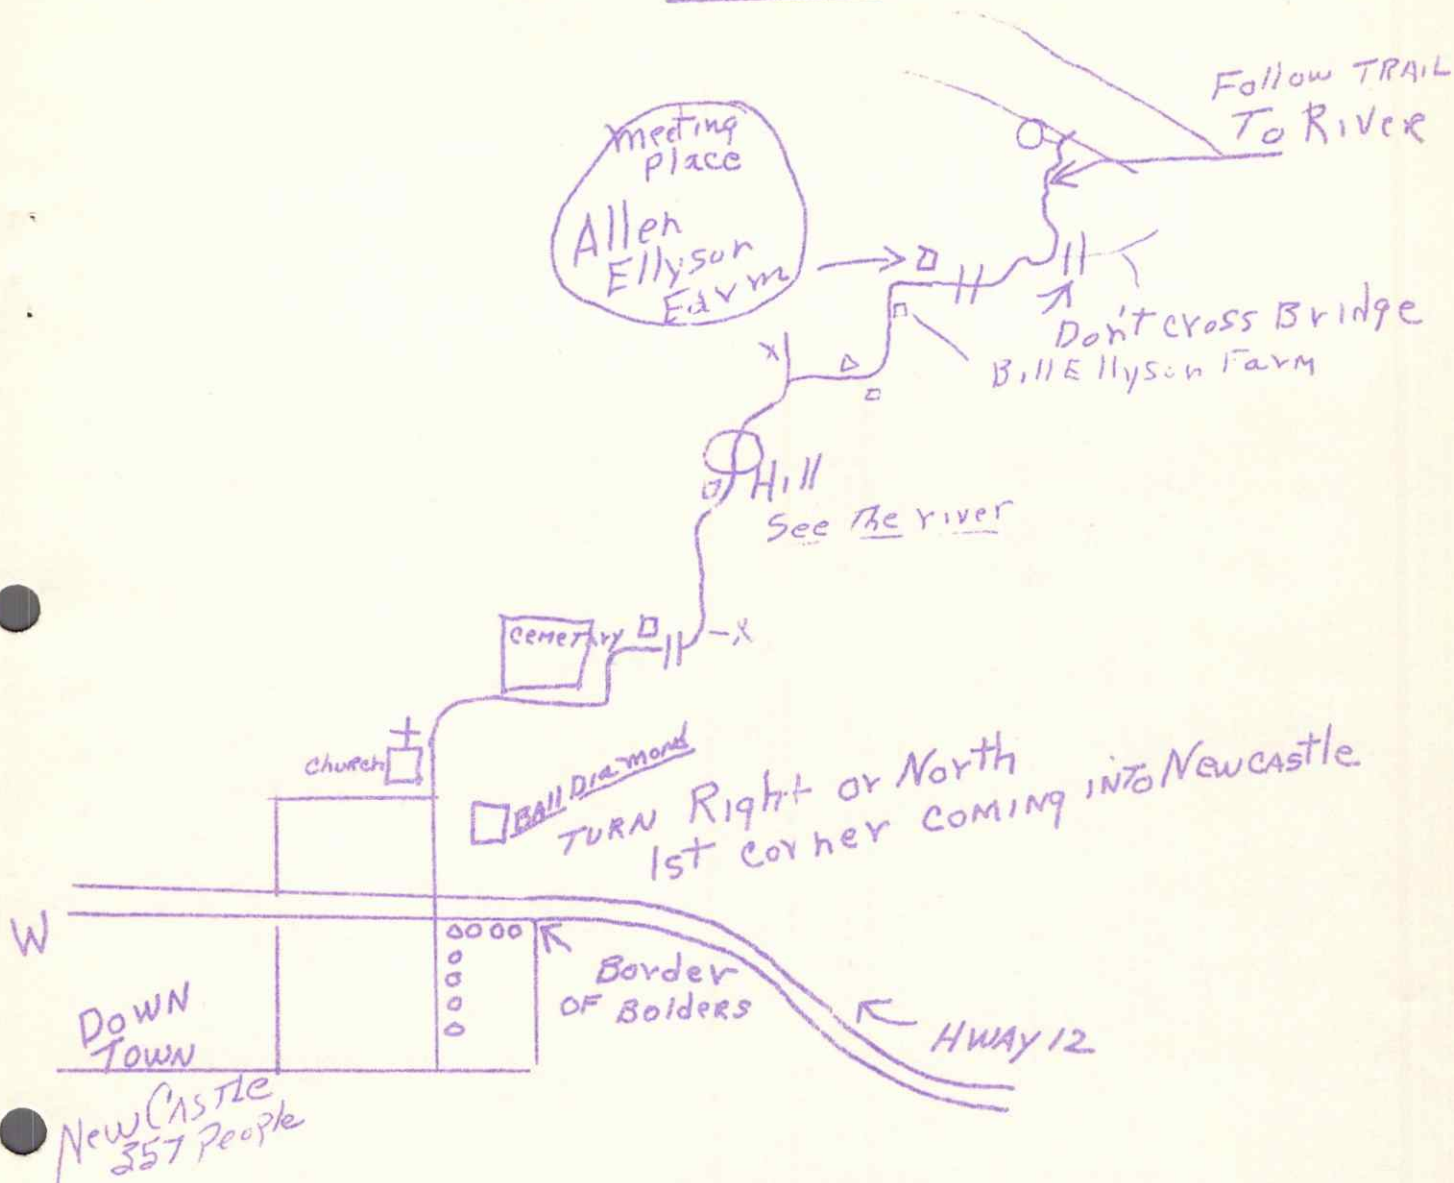 Follow TRAIL
To River
meeting
place
Allen
Ellyson
Farm
Don't cross Bridge
Bill Ellyson Farm
X
Hill
See The river
Cemetary
-X
Church
BAll Diamond
TURN Right or North
1st corner coming into Newcastle
W
Border
OF Bolders
HWAY 12
DOWN
TOWN
New CAsTle
357 People